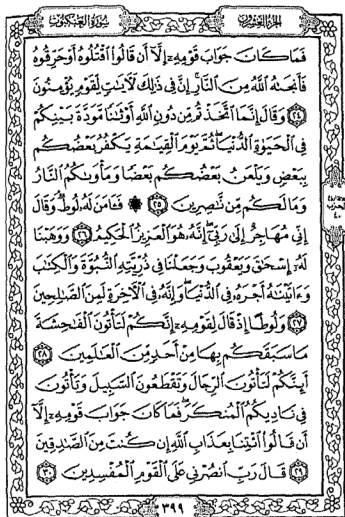 الجزء العشرون
سورة العنكبوت
فَمَا كَانَ جَوَابَ قَوْمِهِۦٓ إِلَّآ أَن قَالُوا۟ ٱقْتُلُوهُ أَوْ حَرِّقُوهُ
فَأَنجَىٰهُ ٱللَّهُ مِنَ ٱلنَّارِ ۚ إِنَّ فِى ذَٰلِكَ لَـَٔايَـٰتٍ لِّقَوْمٍ يُؤْمِنُونَ
٢٤ وَقَالَ إِنَّمَا ٱتَّخَذْتُم مِّن دُونِ ٱللَّهِ أَوْثَـٰنًا مَّوَدَّةَ بَيْنِكُمْ
فِى ٱلْحَيَوٰةِ ٱلدُّنْيَا ۖ ثُمَّ يَوْمَ ٱلْقِيَـٰمَةِ يَكْفُرُ بَعْضُكُم
بِبَعْضٍ وَيَلْعَنُ بَعْضُكُم بَعْضًا وَمَأْوَىٰكُمُ ٱلنَّارُ
وَمَا لَكُم مِّن نَّـٰصِرِينَ ٢٥ ۞ فَـَٔامَنَ لَهُۥ لُوطٌ ۘ وَقَالَ
إِنِّى مُهَاجِرٌ إِلَىٰ رَبِّىٓ ۖ إِنَّهُۥ هُوَ ٱلْعَزِيزُ ٱلْحَكِيمُ ٢٦ وَوَهَبْنَا
لَهُۥٓ إِسْحَـٰقَ وَيَعْقُوبَ وَجَعَلْنَا فِى ذُرِّيَّتِهِ ٱلنُّبُوَّةَ وَٱلْكِتَـٰبَ
وَءَاتَيْنَـٰهُ أَجْرَهُۥ فِى ٱلدُّنْيَا ۖ وَإِنَّهُۥ فِى ٱلْـَٔاخِرَةِ لَمِنَ ٱلصَّـٰلِحِينَ
٢٧ وَلُوطًا إِذْ قَالَ لِقَوْمِهِۦٓ إِنَّكُمْ لَتَأْتُونَ ٱلْفَـٰحِشَةَ
مَا سَبَقَكُم بِهَا مِنْ أَحَدٍ مِّنَ ٱلْعَـٰلَمِينَ ٢٨
أَئِنَّكُمْ لَتَأْتُونَ ٱلرِّجَالَ وَتَقْطَعُونَ ٱلسَّبِيلَ وَتَأْتُونَ
فِى نَادِيكُمُ ٱلْمُنكَرَ ۖ فَمَا كَانَ جَوَابَ قَوْمِهِۦٓ إِلَّآ
أَن قَالُوا۟ ٱئْتِنَا بِعَذَابِ ٱللَّهِ إِن كُنتَ مِنَ ٱلصَّـٰدِقِينَ
٢٩ قَالَ رَبِّ ٱنصُرْنِى عَلَى ٱلْقَوْمِ ٱلْمُفْسِدِينَ ٣٠
٣٩٩